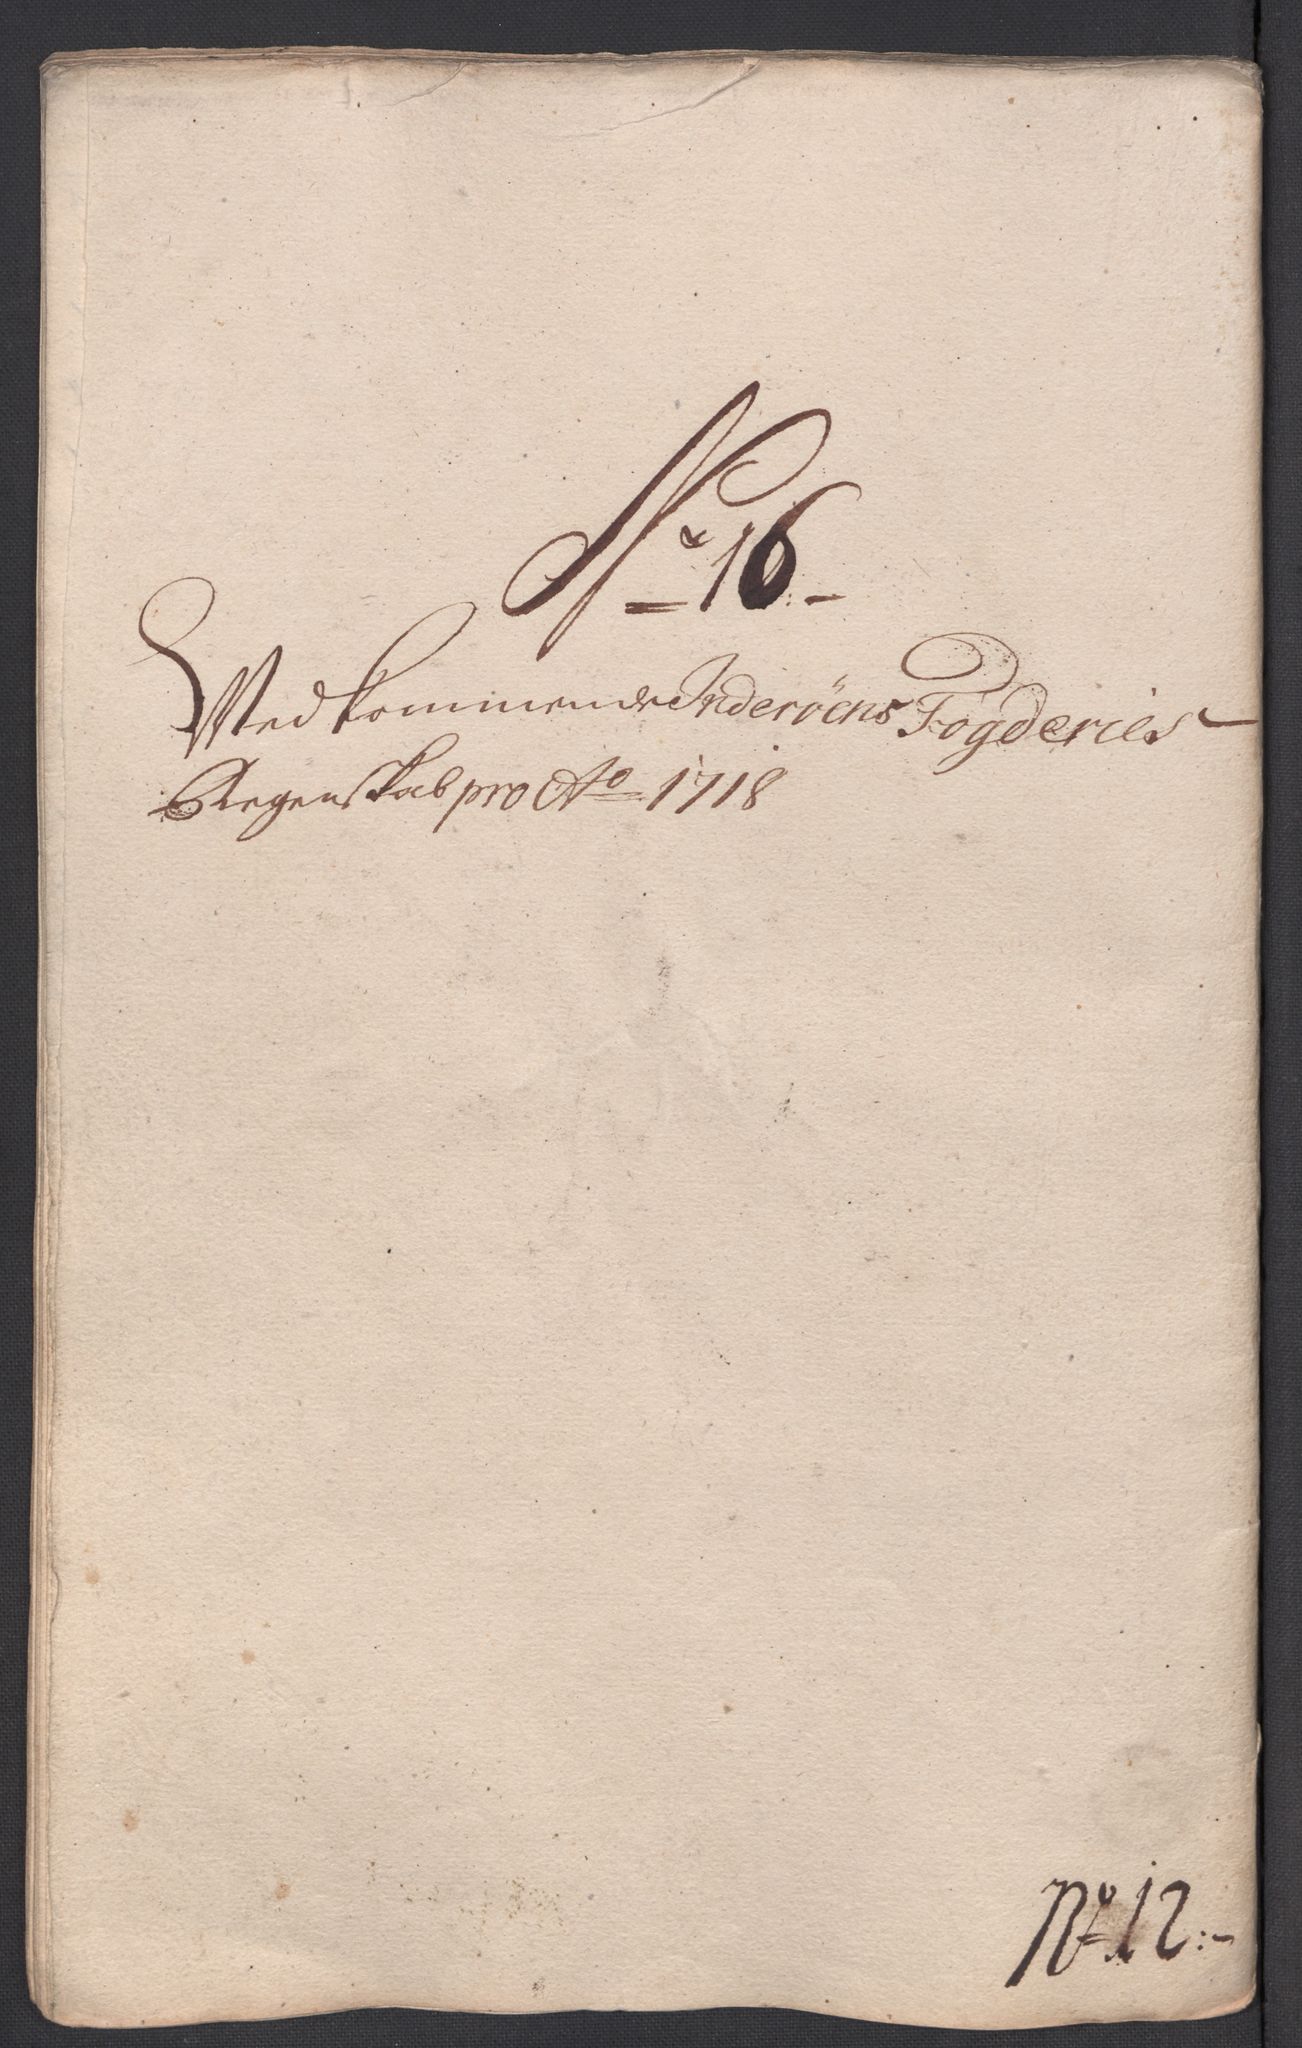 No 16.-
Vedkommende Inderöens Fogderies
Regenskab pro Ao 1718
No 12:-